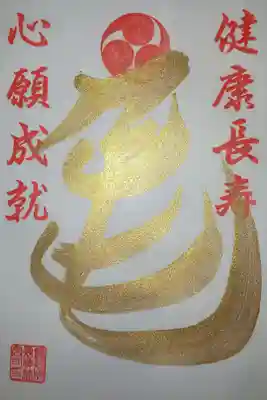 健康長寿
心願成就